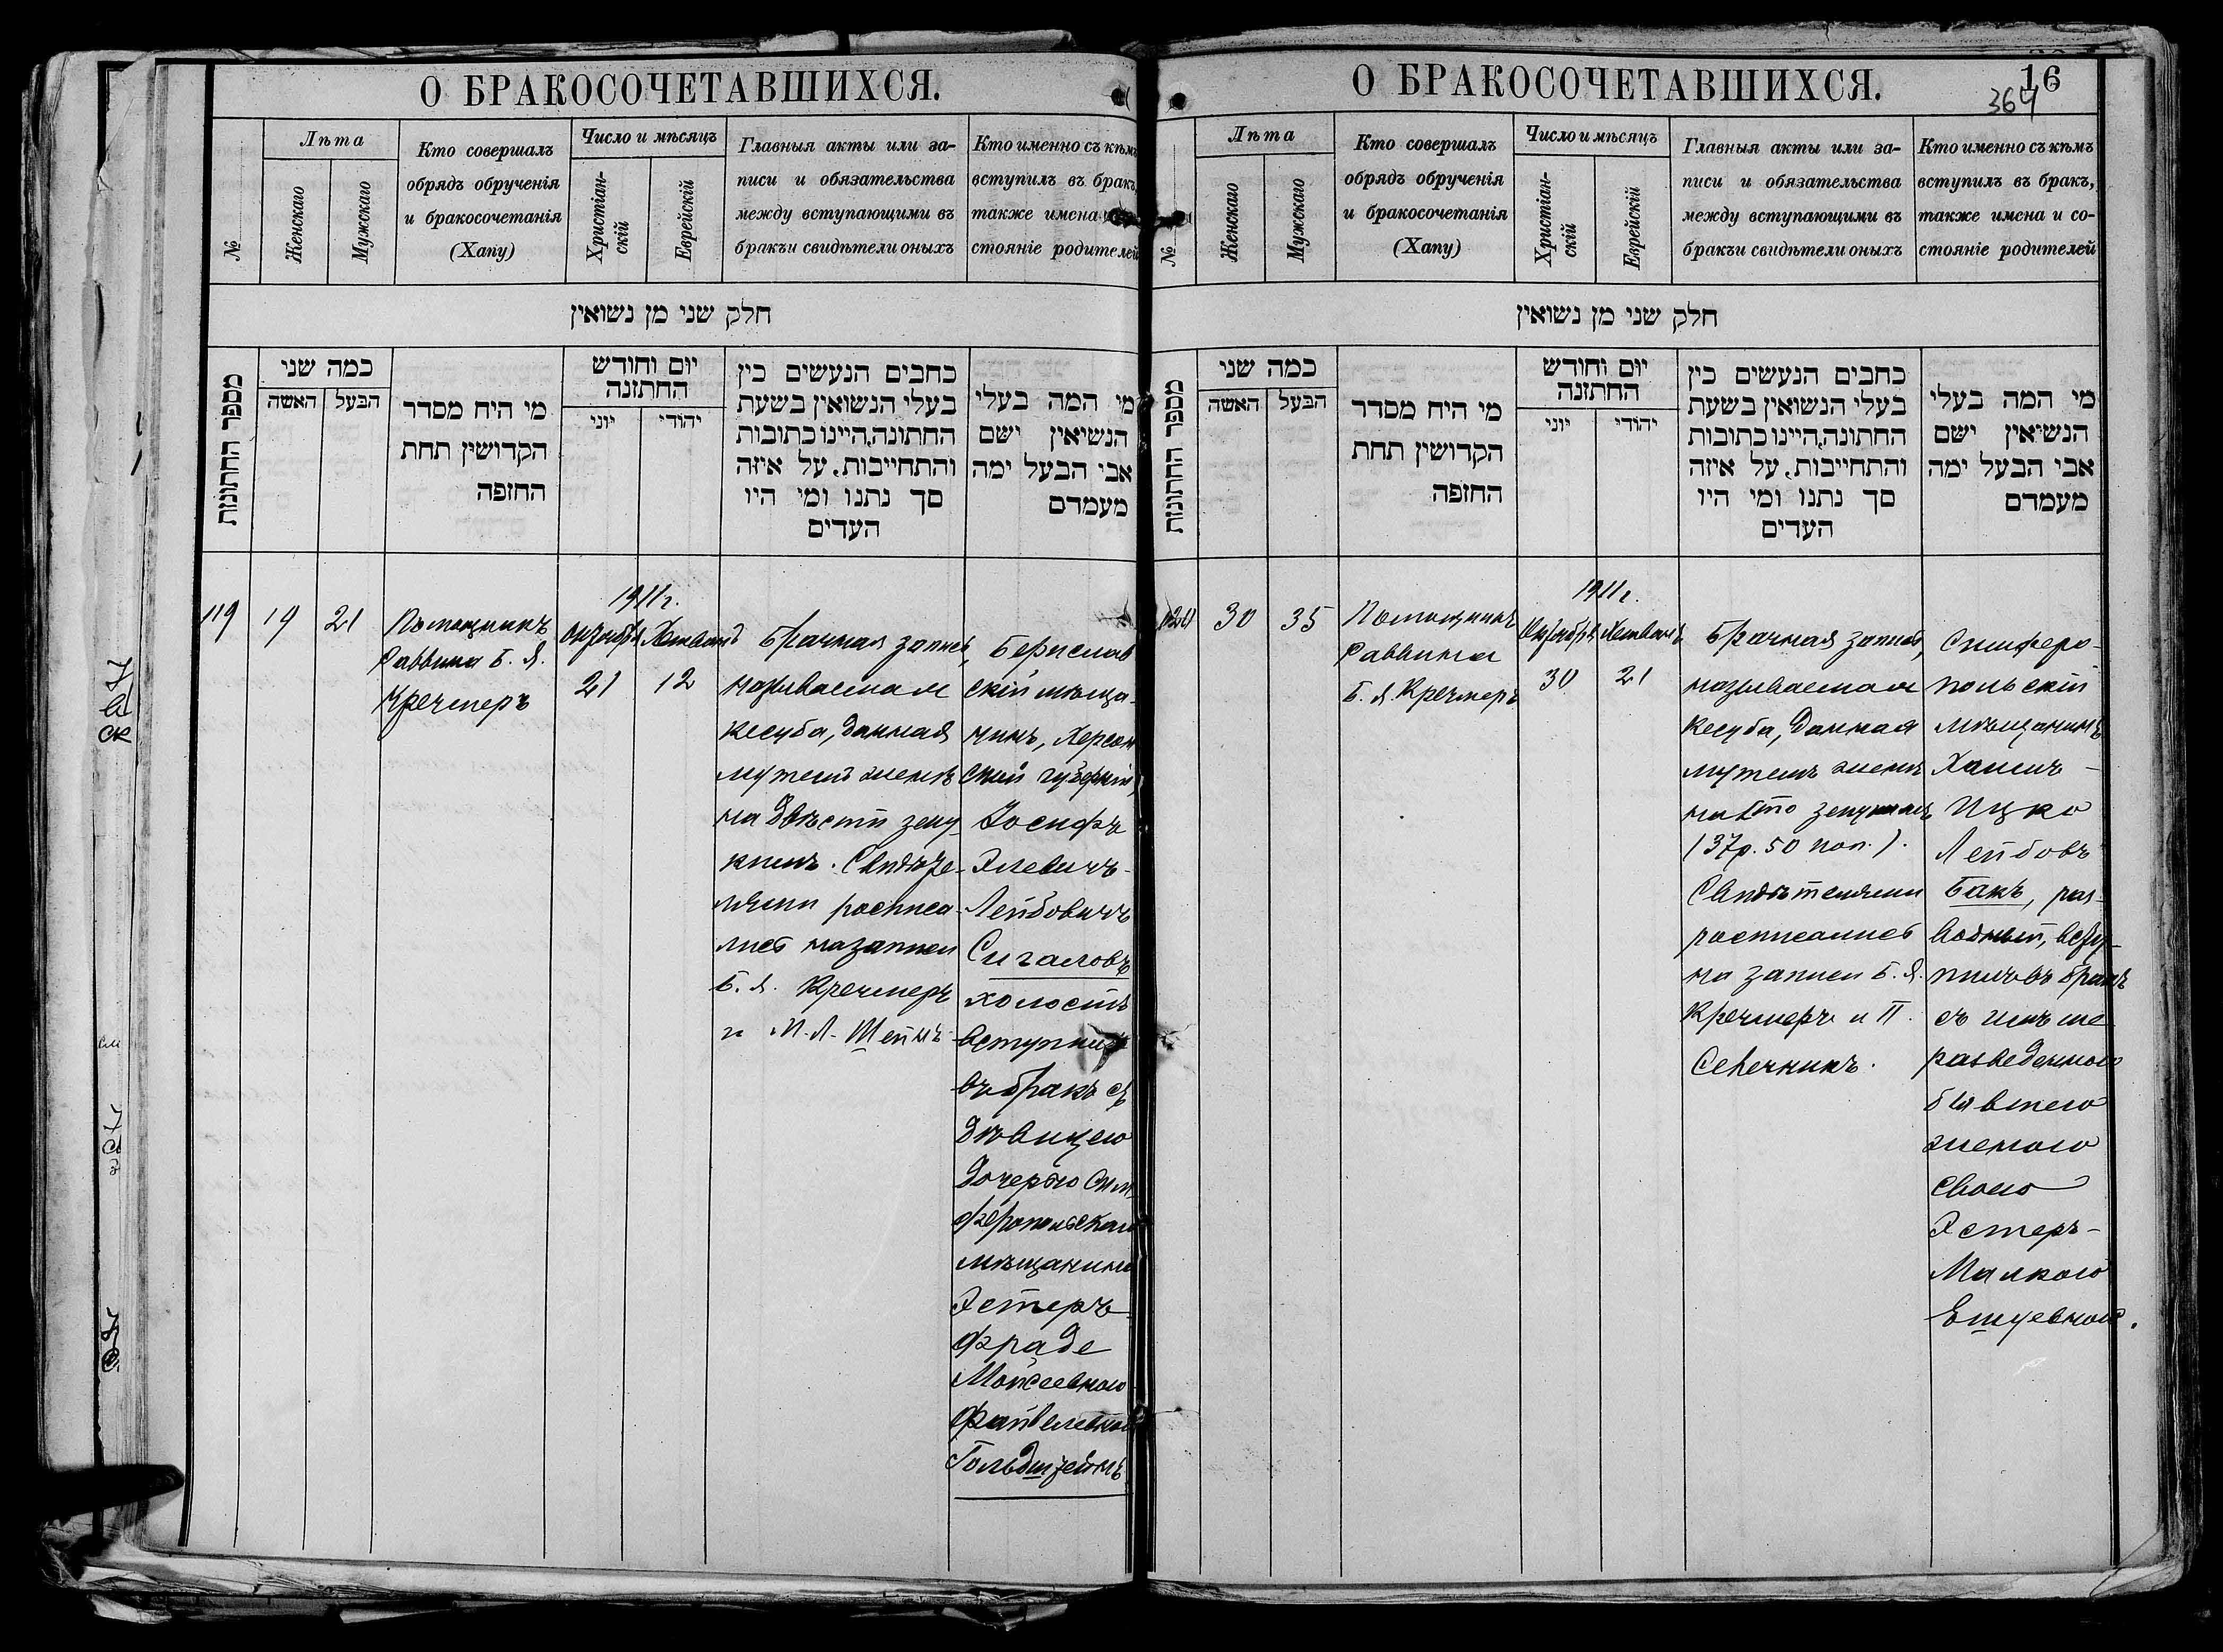 О БРАКОСОЧЕТАВШИХСЯ.
№
Лѣта
Женскаго
Мужскаго
Кто совершалъ
обрядъ обрученія
и бракосочетанія
(Хапу)
Число и мѣсяцъ
Христіан-
скій
Еврейскій
Главныя акты или за-
писи и обязательства
между вступающими въ
бракъи свидѣтели оныхъ
Кто именно съ кѣмъ
вступилъ въ бракъ,
также имена
стояніе родителей
חלק שני מן נשואין
מספר החתונות
כמה שני
האשה
הבעל
מי היח מסדר
הקדושין תחת
החופה
יום וחודש
החתונה
יוני
יהודי
כחבים הנעשים כין
בעלי הנשואין בשעת
החתונה, היינו כתובות
והתחייבות, על איזה
סך נתנו ומי היו
העדים
מי המה בעלי
הנשיאין ישם
אבי הבעל ימה
מעמדם
119
19
21
Помощникъ
Раввина Б. Я.
Кречмеръ
1911 г.
Октября
Хешванъ
21
12
Брачная запись,
называемая
кесуба, данная
мужемъ женѣ
на двѣсти зеку-
кимъ. Свидѣте-
лями росписа-
лись на записи
Б. Я. Кречмеръ
и М. Л. Штейнъ
Берислав
скій мѣща-
нинъ, Херсон
ской губерніи,
Іосифъ
Элевичъ-
Лейбовичъ
Сигаловъ
холостъ
вступилъ
въ бракъ съ
дѣвицею
дочерью Сим
феропольскаго
мѣщанина
Эстеръ-
Фраде
Мойсеевною
Файвелевною
Гольдштейнъ
О БРАКОСОЧЕТАВШИХСЯ.
16
364
№
Лѣта
Женскаго
Мужскаго
Кто совершалъ
обрядъ обрученія
и бракосочетанія
(Хапу)
Число и мѣсяцъ
Христіан-
скій
Еврейскій
Главныя акты или за-
писи и обязательства
между вступающими въ
бракъи свидѣтели оныхъ
Кто именно съ кѣмъ
вступилъ въ бракъ,
также имена и со-
стояніе родителей
חלק שני מן נשואין
מספר החתונות
כמה שני
האשה
הבעל
מי היח מסדר
הקדושין תחת
החופה
יום וחודש
החתונה
יוני
יהודי
כחבים הנעשים כין
בעלי הנשואין בשעת
החתונה, היינו כתובות
והתחייבות, על איזה
סך נתנו ומי היו
העדים
מי המה בעלי
הנשיאין ישם
אבי הבעל ימה
מעמדם
120
30
35
Помощникъ
Раввина
Б. Я. Кречмеръ
1911 г.
Октября
Хешванъ
30
21
Брачная запись,
называемая
кесуба, данная
мужемъ женѣ
на сто зекукимъ
(37р. 50 коп.).
Свидѣтелями
росписались
на записи Б. Я.
Кречмеръ и П.
Свечникъ.
Симферо-
польскій
мѣщанинъ
Хаимъ-
Ицко
Лейбовъ
Бакъ, раз-
водный, всту-
пилъ въ бракъ
съ имъ же
разведенною
бывшею
женою
своею
Эстеръ-
Малкою
Ешуевною.